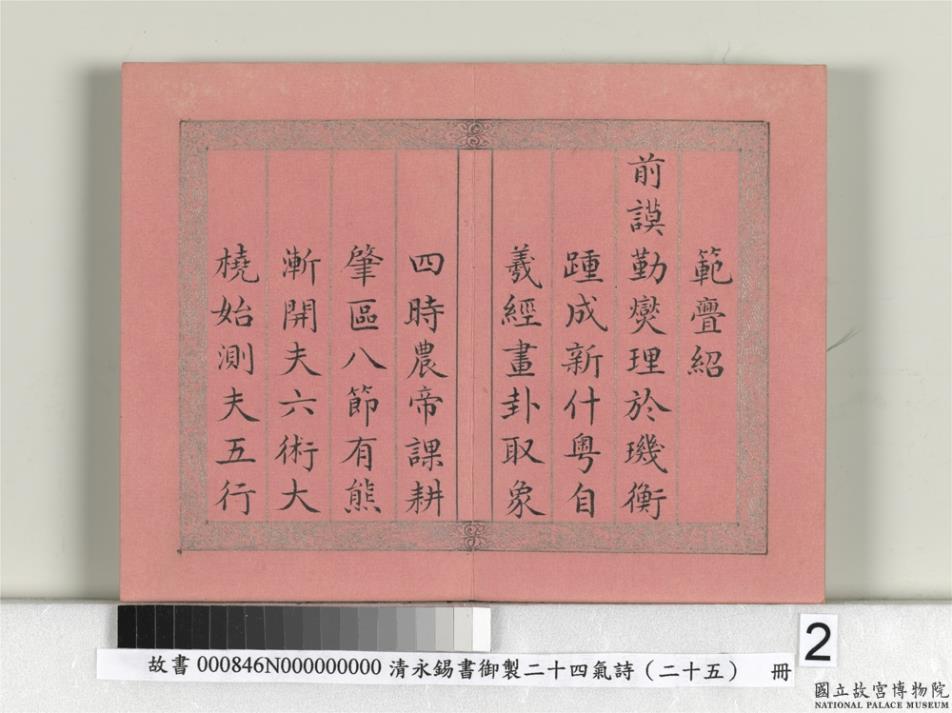 範亹紹
前謨勤爕理於璣衡
踵成新什粤自
羲經畫卦取象
四時農帝課耕
肇區八節有熊
漸開夫六術大
橈始測夫五行
2
故書 000846N000000000 清永錫書御製二十四氣詩（二十五） 冊
國立故宮博物院
NATIONAL PALACE MUSEUM